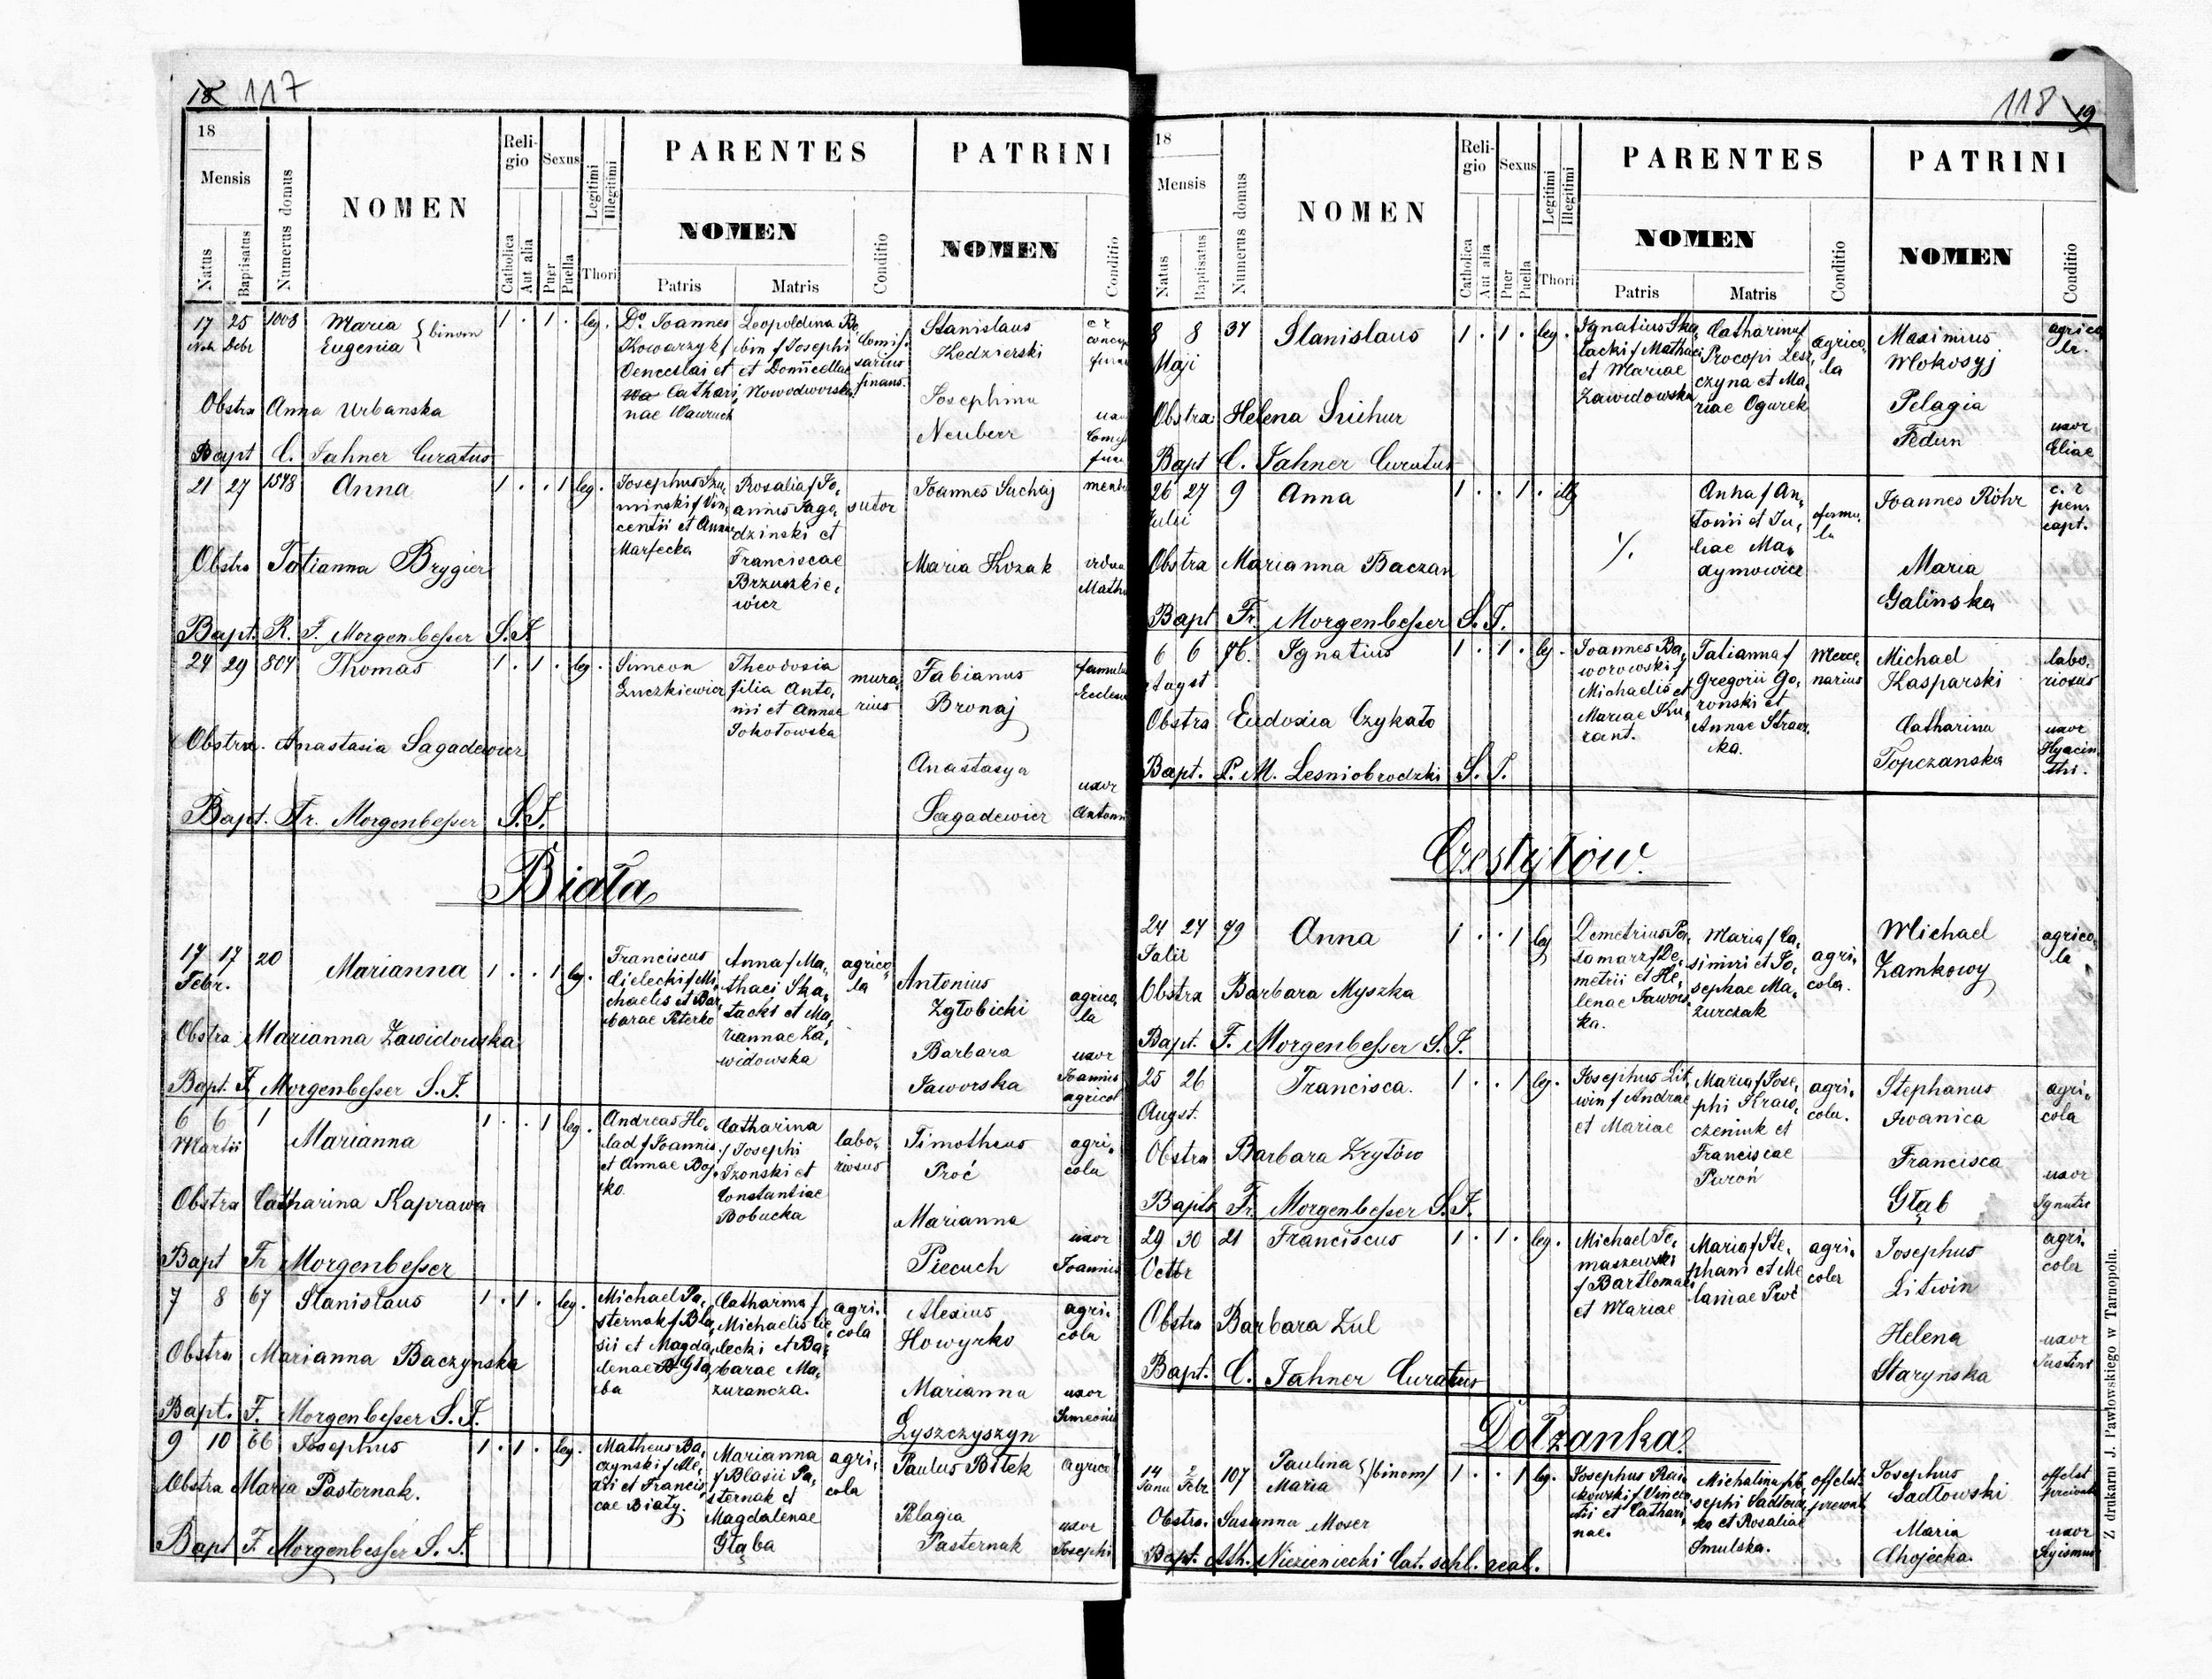 18 117
18
Mensis
Natus
Baptisatus
Numerus domus
NOMEN
Religio
Catholica
Aut alia
Sexus
Puer
Puella
Legitimi
Illegitimi
Thori
PARENTES
NOMEN
Patris
Matris
Conditio
PATRINI
NOMEN
Conditio
17 25 1008 Maria
Eugenia
{ binom
1 . 1 . leg.
Joannes
Kowarzyk f
Venceslai et
Cathari,
nae Wawruch
Leopoldina
Josephi
et Domicellae
Nowodworska
Comis
sarius
finans.
Stanislaus
Kedzierski
Josephina
Neuberr
Obstra Anna Urbanska
Bapt C. Jahner Curatus
21 27 1548 Anna
1 . . 1 leg.
Josephus
minski f Vin,
centii et Annae
Marfecka
Rosalia f Jo,
annis Jago,
dzinski et
Franciscae
Brzuszkie,
wicz
sutor
Joannes Suchaj
Maria Kozak
Obstra Tatianna Brygier
Bapt. R. F. Morgenbesser S.J.
24 29 804 Thomas
1 . 1 . leg.
Simeon
Łuczkiewicz
Theodosia
filia Anto,
nii et Annae
Sokołowska
mura,
rius
Fabianus
Bronaj
Anastasya
Sagadewicz
uxor
Antonii
Obstra. Anastasia Sagadewicz
Bapt. Fr. Morgenbesser S.J.
Biała
17 17 20 Marianna
Febr.
1 . . 1 leg.
Franciscus
dielecki f Mi,
chaelis et Bar,
barae Peterko
Anna f Ma,
thaei Ska,
łacki et Ma,
riannae Za,
widowska
agrico,
la
Antonius
Zgłobicki
agrico,
la
Barbara
Jaworska
uxor
Joannis
agricol
Obstra Marianna Zawidowska
Bapt. F. Morgenbesser S.J.
6 6 1 Marianna
Martii
1 . . 1 leg.
Andreas Ho,
lad f Joannis
et Annae Boj,
ko
Catharina
f Josephi
Izonski et
Constantiae
Bobucka
labo,
riosus
Timotheus
Proć
agri,
cola
Marianna
Piecuch
uxor
Joannis
Obstra Catharina Kaprawa
Bapt Fr Morgenbesser
7 8 67 Stanislaus
1 . 1 . leg.
Michael Pa,
sternak f Bla,
sii et Magda,
lenae Głą,
ba
Catharina f
Michaelis Cie,
lecki et Bar,
barae Ma,
zurancza.
agri,
cola
Alexius
Howyrko
agri,
cola
Marianna
Łyszczyszyn
uxor
Simeonis
Obstra Marianna Baczynska
Bapt. F. Morgenbesser S.J.
9 10 66 Josephus
1 . 1 . leg.
Matheus Ba,
czynski f Ale,
xii et Francis,
cae Biały.
Marianna
f Blasii Pa,
sternak et
Magdalenae
Głąba
agri,
cola
Paulus Bilek
Pelagia
Pasternak
uxor
Josephi
Obstra Maria Pasternak.
Bapt F. Morgenbesser S.J.
118 19
18
Mensis
Natus
Baptisatus
Numerus domus
NOMEN
Religio
Catholica
Aut alia
Sexus
Puer
Puella
Legitimi
Illegitimi
Thori
PARENTES
NOMEN
Patris
Matris
Conditio
PATRINI
NOMEN
Conditio
8 8 37 Stanislaus
Maji
1 . 1 . leg.
Ignatius Ska,
łacki f Mathaei
et Mariae
Zawidowska
Catharina f
Procopi Lesz,
czyna et Ma,
riae Ogurek
agrico,
la
Maximus
Mokosyj
agrico
la.
Pelagia
Fedun
uxor
Eliae
Obstra Helena
Bapt C. Jahner Curatus
26 27 9 Anna
Julii
1 . . 1 . ille
%
Anna f An,
tonii et Ju,
liae Ma,
dymowicz
famu,
la
Joannes Röhr
c. r.
pens
capt.
Maria
Galinska
Obstra Marianna Baczan
Bapt Fr. Morgenbesser S.J.
6 6 76. Ignatius
August
1 . 1 . leg.
Joannes Ba,
worowski f
Michaelis et
Mariae Ku,
rant.
Tatianna f
Gregorii Go,
ronski et
Annae
ka.
Merce,
narius
Michael
Kasparski
labo,
riosus
Catharina
Topczanska
uxor
Hyacin
thi.
Obstra Eudoxia Czykało
Bapt. P. M. Lesniobrodzki S.J.
Czestyłów.
24 27 79 Anna
Julii
1 . . 1 leg
Demetrius Po,
łamarz f De,
metrii et He,
lenae Jawors,
ka.
Maria f Ca,
simiri et Jo,
sephae Ma,
zurczak
agri,
cola.
Michael
Zamkowy
agrico,
la
Obstra Barbara Myszka
Bapt. F. Morgenbesser S.J.
25 26 Francisca.
Augst.
1 . . 1 leg.
Josephus Lit,
win f Andrae
et Mariae
Maria f Jose,
phi Kraw,
czeniuk et
Franciscae
Puroń
agri,
cola.
Stephanus
Iwanica
agri,
cola
Francisca
Głąb
uxor
Ignatii
Obstra Barbara Zrytów
Bapt Fr. Morgenbesser S.J.
29 30 21 Franciscus
Octbr
1 . 1 . leg.
Michael To,
maszewski
f Bartlomaei
et Mariae
Maria f Ste,
phani et Me
laniae Proć
agri,
cola
Josephus
Litwin
agri,
cola
Helena
Starynska
uxor
Justini
Obstra Barbara Zul
Bapt. C. Jahner Curatus
Dołzanka.
14 2 107 Paulina
Janu Febr Maria
{ binom
1 . . 1 leg.
Josephus Rai,
kowski f Vincen
tii et Cathari,
nae.
Michalina f Jo,
sephi Sadłows,
ka et Rosaliae
Smulska.
Josephus
Sadłowski
Maria
Chojecka.
uxor
Obstra. Susanna Moser
Bapt. Ath. Niezieniecki Cat. schl. real.
Z drukarni J. Pawłowskiego w Tarnopolu.